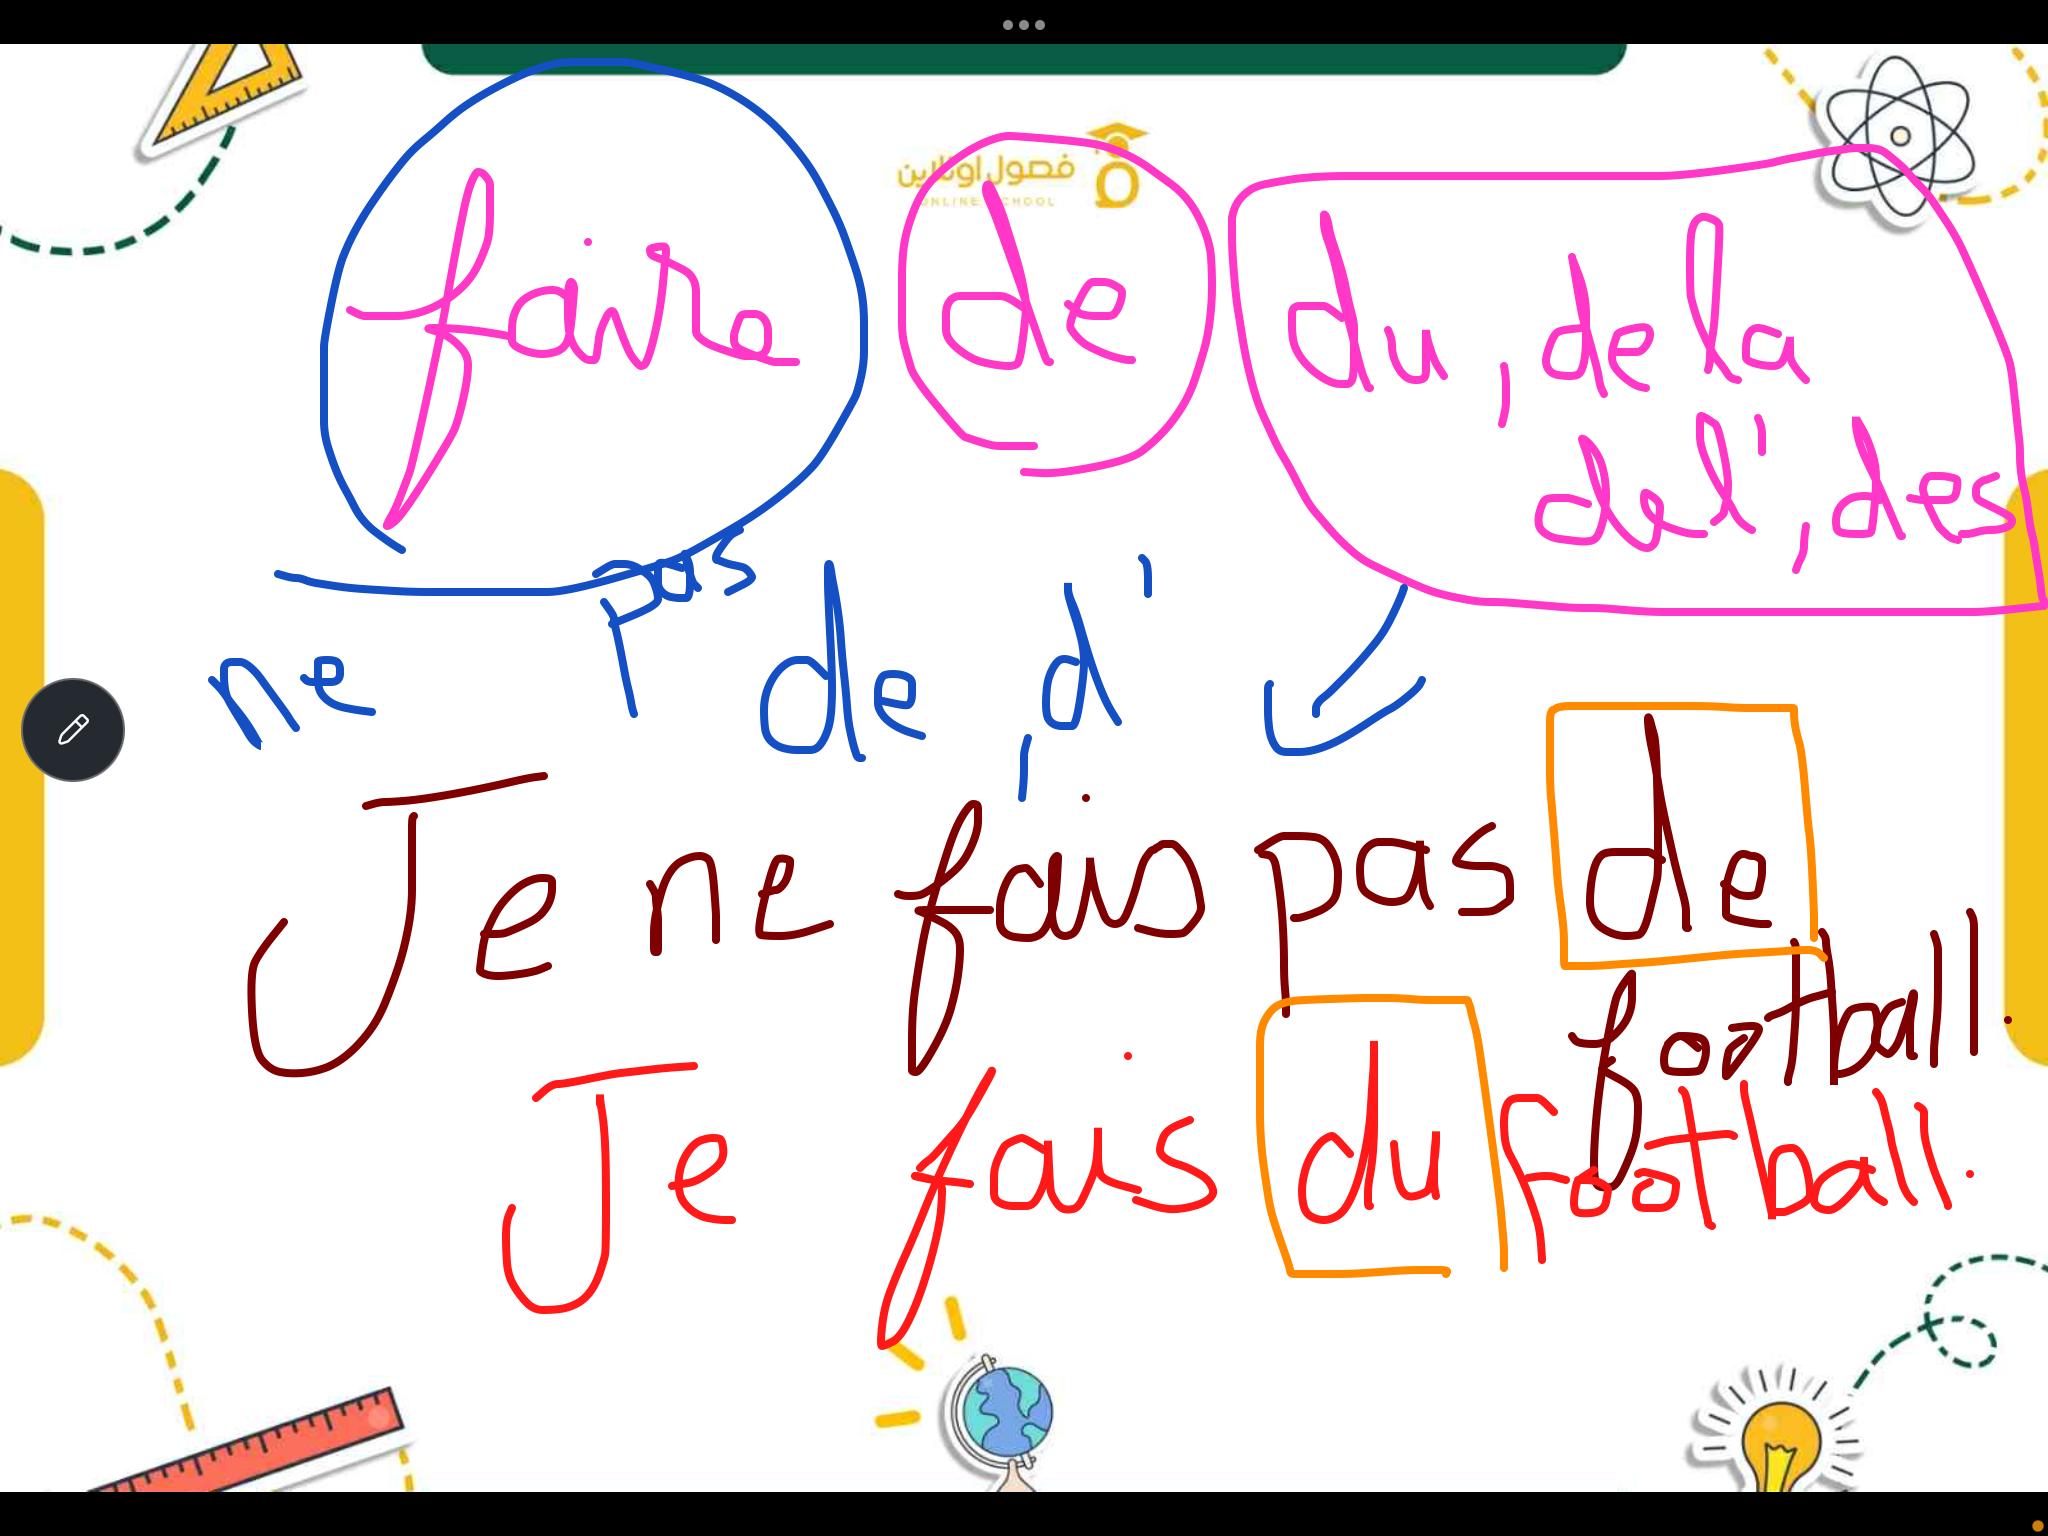 فصول اونلاين
ONLINE SCHOOL
faire de du, de la
de l', des
ne pas de, d'
Je ne fais pas de
football.
Je fais du football.